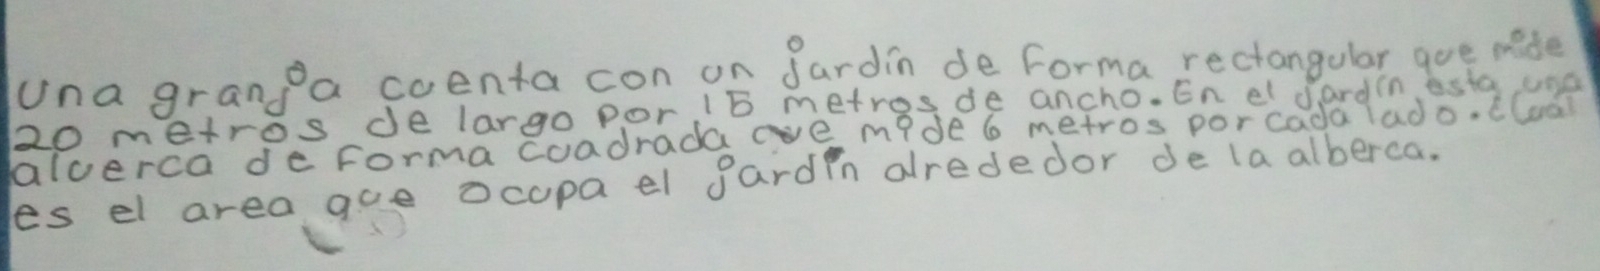 Una granja cuenta con un jardín de forma rectangular que mide
20 metros de largo por 15 metros de ancho. En el jardín esta una
alverca de forma cuadrada que mide 6 metros por cada lado. ¿Cual
es el area que ocupa el jardín alrededor de la alberca.